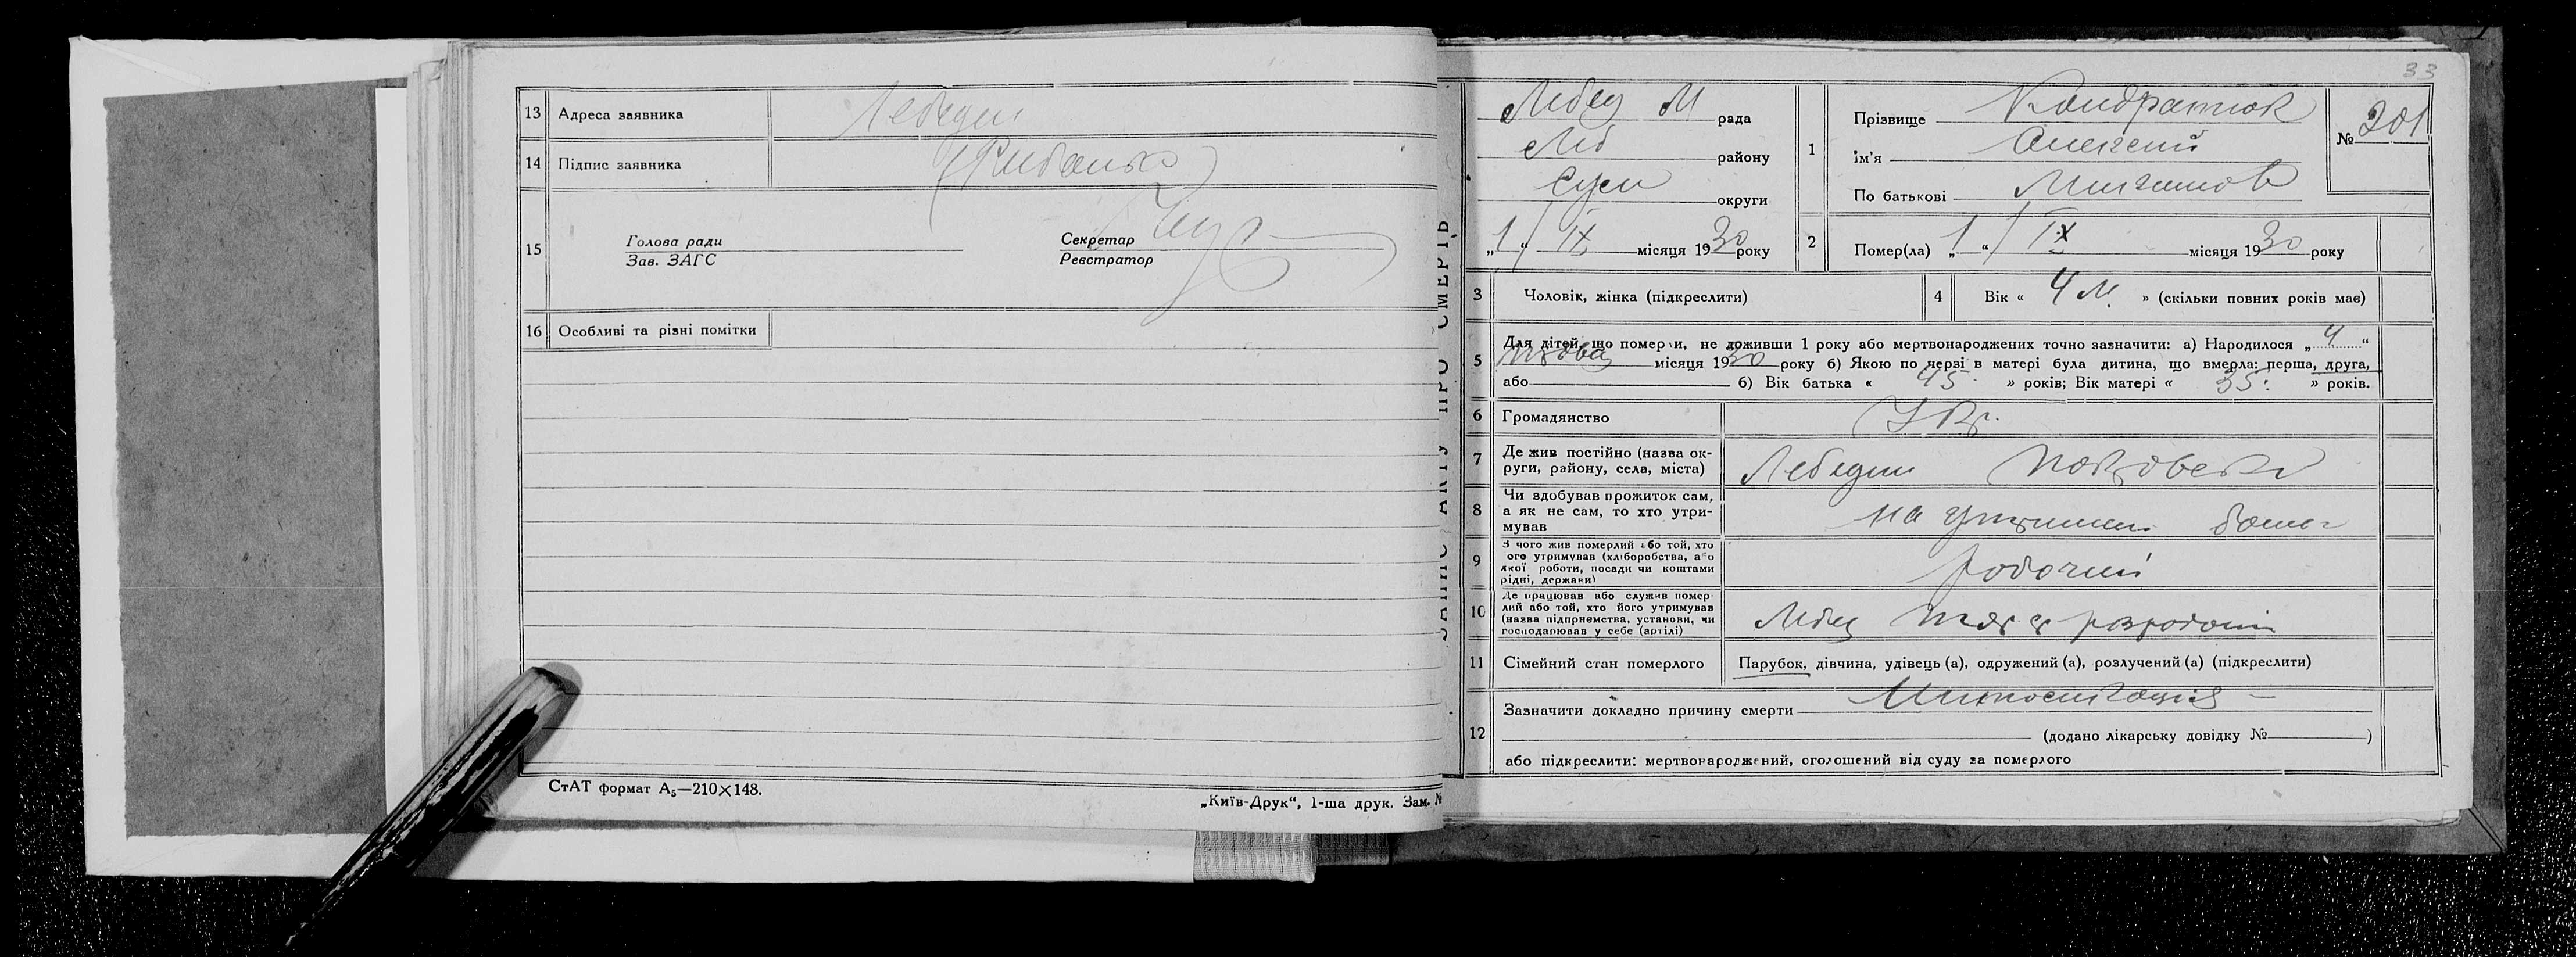 13 Адреса заявника Лебедин
14 Підпис заявника
15 Голова ради
Зав. ЗАГС
Секретар
Реєстратор
16 Особливі та різні помітки
СтАТ формат А5—210×148.
„Київ-Друк“, 1-ша друк. Зам. №
ЗАПИС АКТУ ПРО СМЕРТЬ
33
Лебед М рада
Леб району
Сум округи
„1“ IX місяця 1930 року
1 Прізвище Кондратюк
ім'я Олексій
По батькові
№ 201
2 Помер(ла) „1“ IX місяця 1930 року
3 Чоловік, жінка (підкреслити)
4 Вік « 4 м. » (скільки повних років має)
5 Для дітей, що померли, не доживши 1 року або мертвонароджених точно зазначити: а) Народилося „4“
місяця 1930 року б) Якою по черзі в матері була дитина, що вмерла: перша, друга,
або б) Вік батька « 45 » років; Вік матері « 35 » років.
6 Громадянство Укр.
7 Де жив постійно (назва ок-
руги, району, села, міста) Лебедин
8 Чи здобував прожиток сам,
а як не сам, то хто утри-
мував на
9 З чого жив померлий або той, хто
його утримував (хліборобства, або
якої роботи, посади чи коштами
рідні, держави) робочий
10 Де працював або служив помер
лий або той, хто його утримував
(назва підприємства, установи, чи
господарював у себе (артілі) Лебед
11 Сімейний стан померлого Парубок, дівчина, удівець (а), одружений (а), розлучений (а) (підкреслити)
12 Зазначити докладно причину смерти Интоксикация
(додано лікарську довідку № )
або підкреслити: мертвонароджений, оголошений від суду за померлого